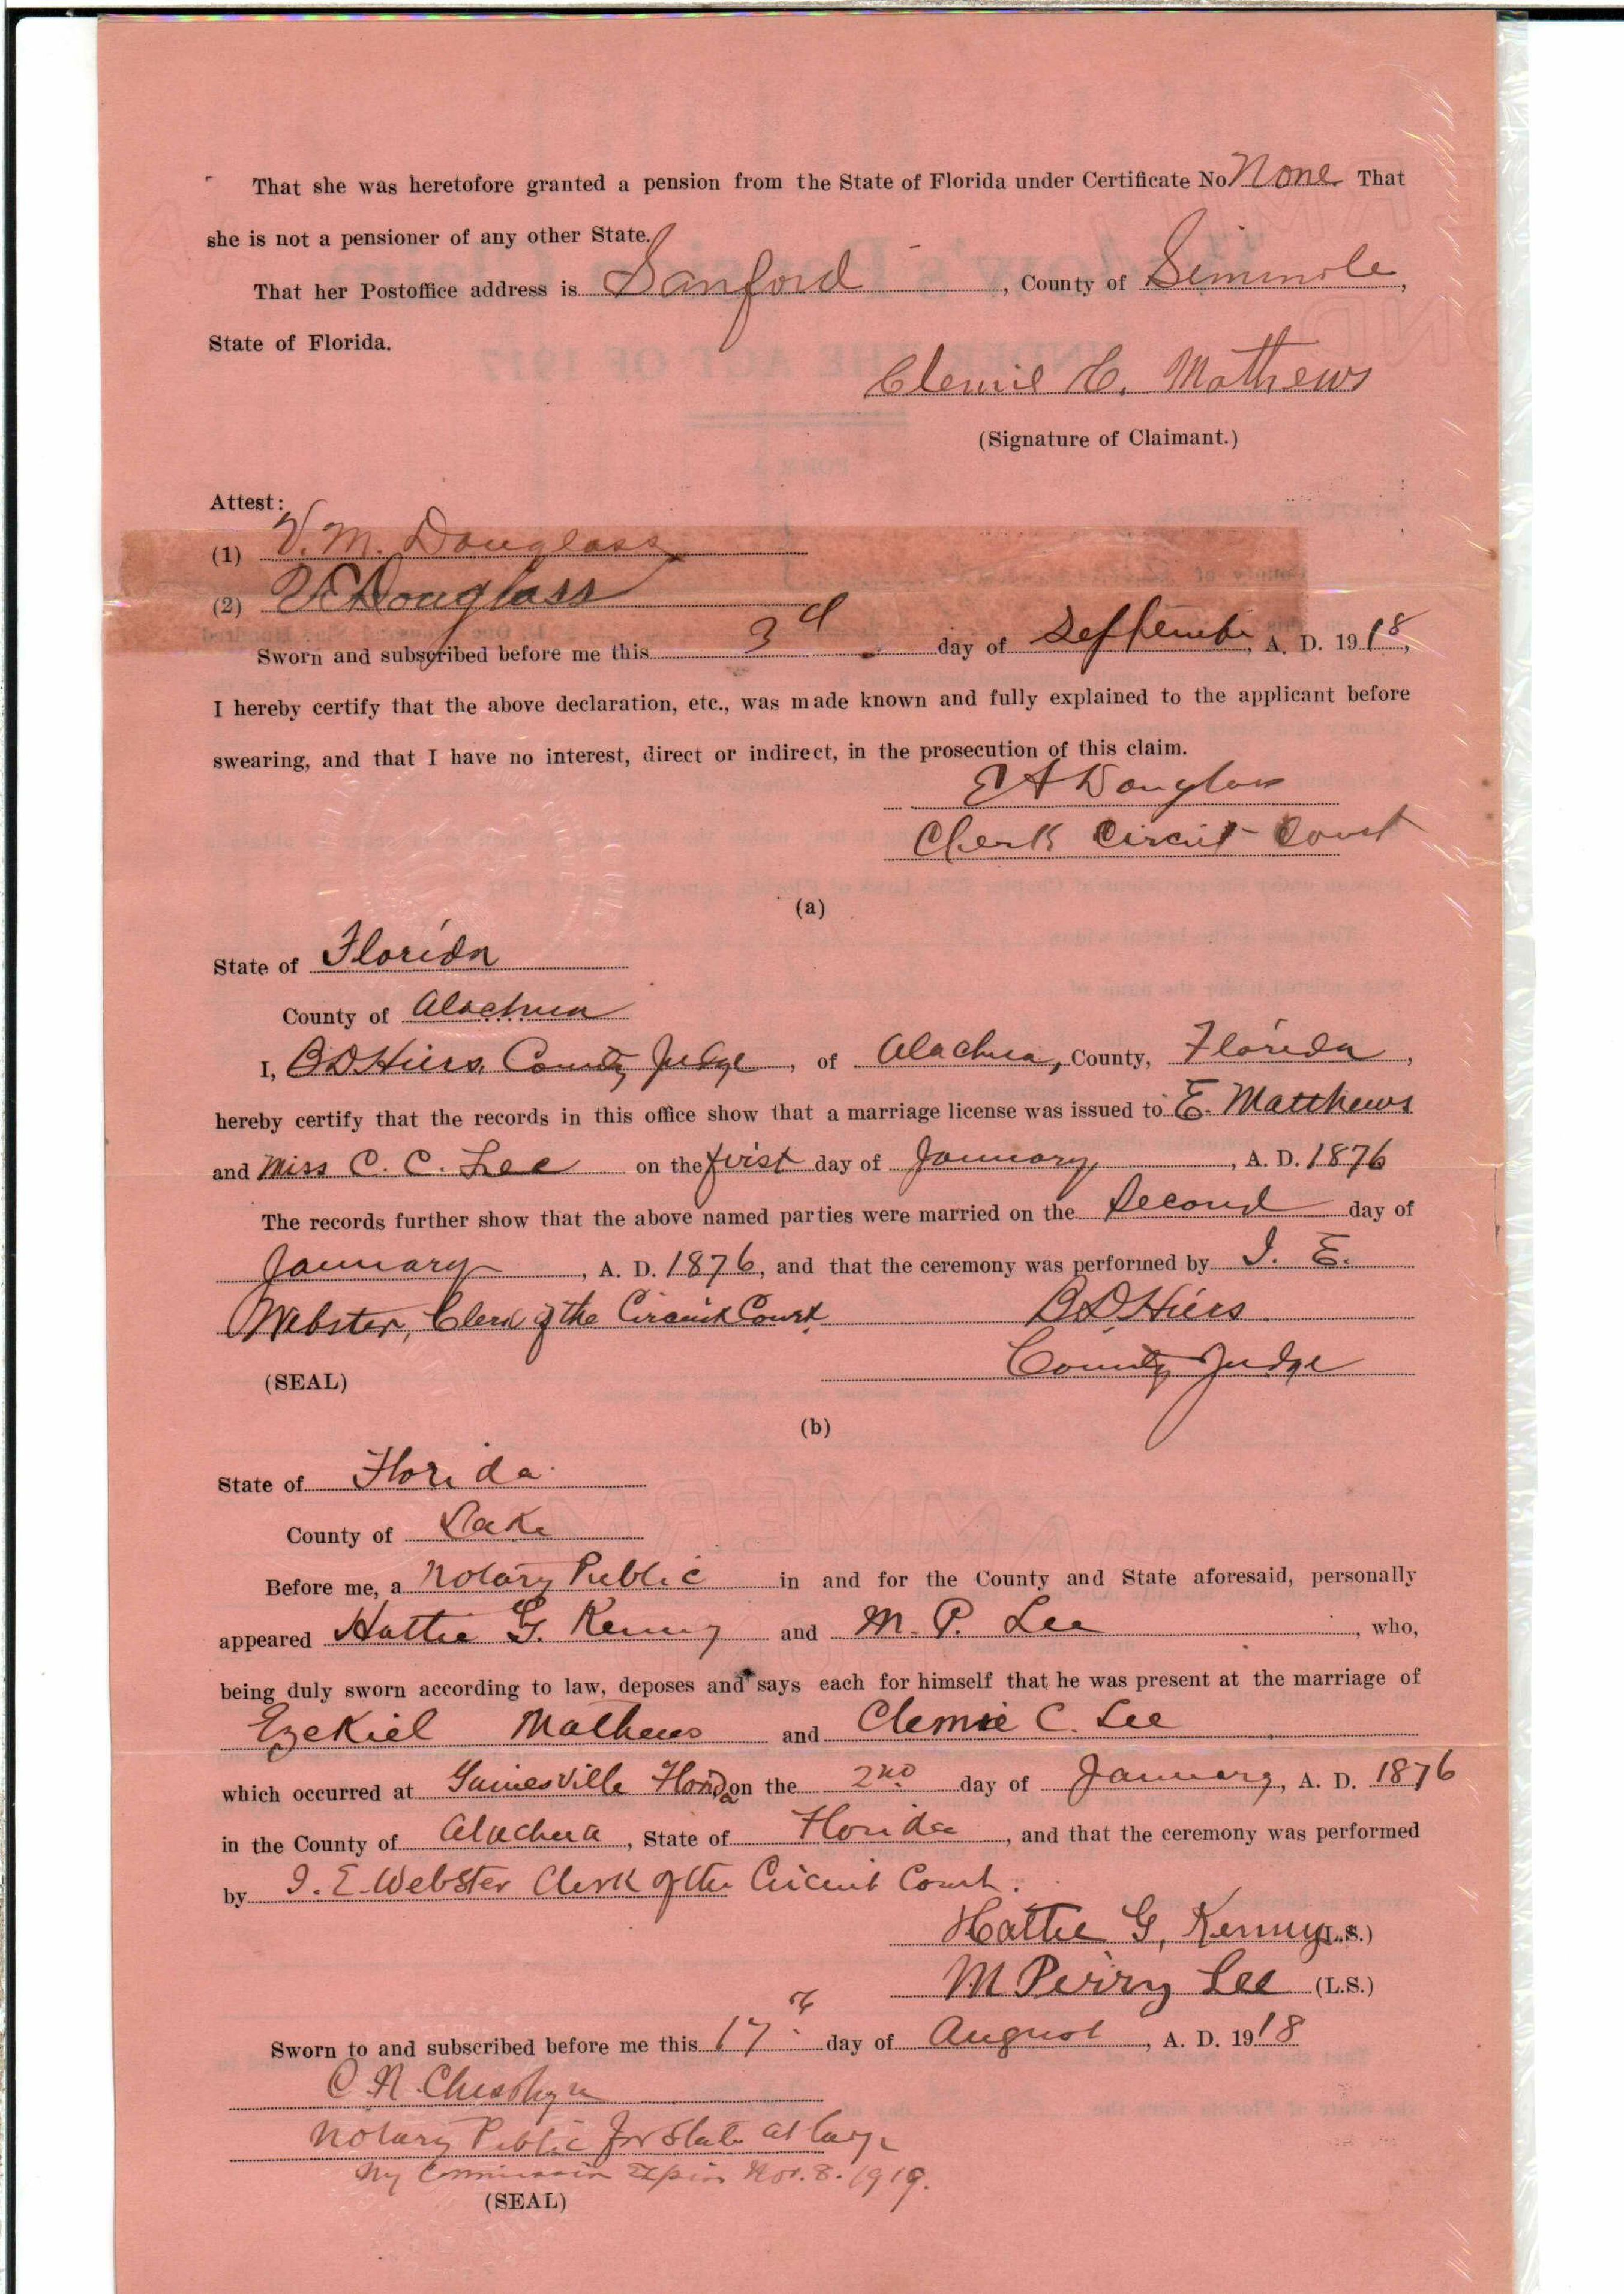 That she was heretofore granted a pension from the State of Florida under Certificate No. None. That
she is not a pensioner of any other State.
That her Postoffice address is Sanford, County of Seminole,
State of Florida.
Clemie C. Mathews
(Signature of Claimant.)
Attest:
(1) V. M. Douglass
(2) Douglass
Sworn and subscribed before me this 3d day of September, A. D. 1918,
I hereby certify that the above declaration, etc., was made known and fully explained to the applicant before
swearing, and that I have no interest, direct or indirect, in the prosecution of this claim.
E A Douglass
Clerk Circuit Court
(a)
State of Florida
County of Alachua
I, B D Hiers, County Judge, of Alachua, County, Florida,
hereby certify that the records in this office show that a marriage license was issued to E. Matthews
and Miss C. C. Lee on the first day of January, A. D. 1876
The records further show that the above named parties were married on the Second day of
January, A. D. 1876, and that the ceremony was performed by I. E.
Webster, Clerk of the Circuit Court B D Hiers
County Judge
(SEAL)
(b)
State of Florida
County of Lake
Before me, a Notary Public in and for the County and State aforesaid, personally
appeared Hattie G. Kenny and M. P. Lee, who,
being duly sworn according to law, deposes and says each for himself that he was present at the marriage of
Ezekiel Mathews and Clemie C. Lee
which occurred at Gainesville Florida on the 2nd day of January, A. D. 1876
in the County of Alachua, State of Florida, and that the ceremony was performed
by I. E. Webster Clerk of the Circuit Court.
Hattie G. Kenny (L.S.)
M Perry Lee (L.S.)
Sworn to and subscribed before me this 17th day of August, A. D. 1918
C. N.
Notary Public for State at Large
My Commission Expires Nov. 8. 1919.
(SEAL)